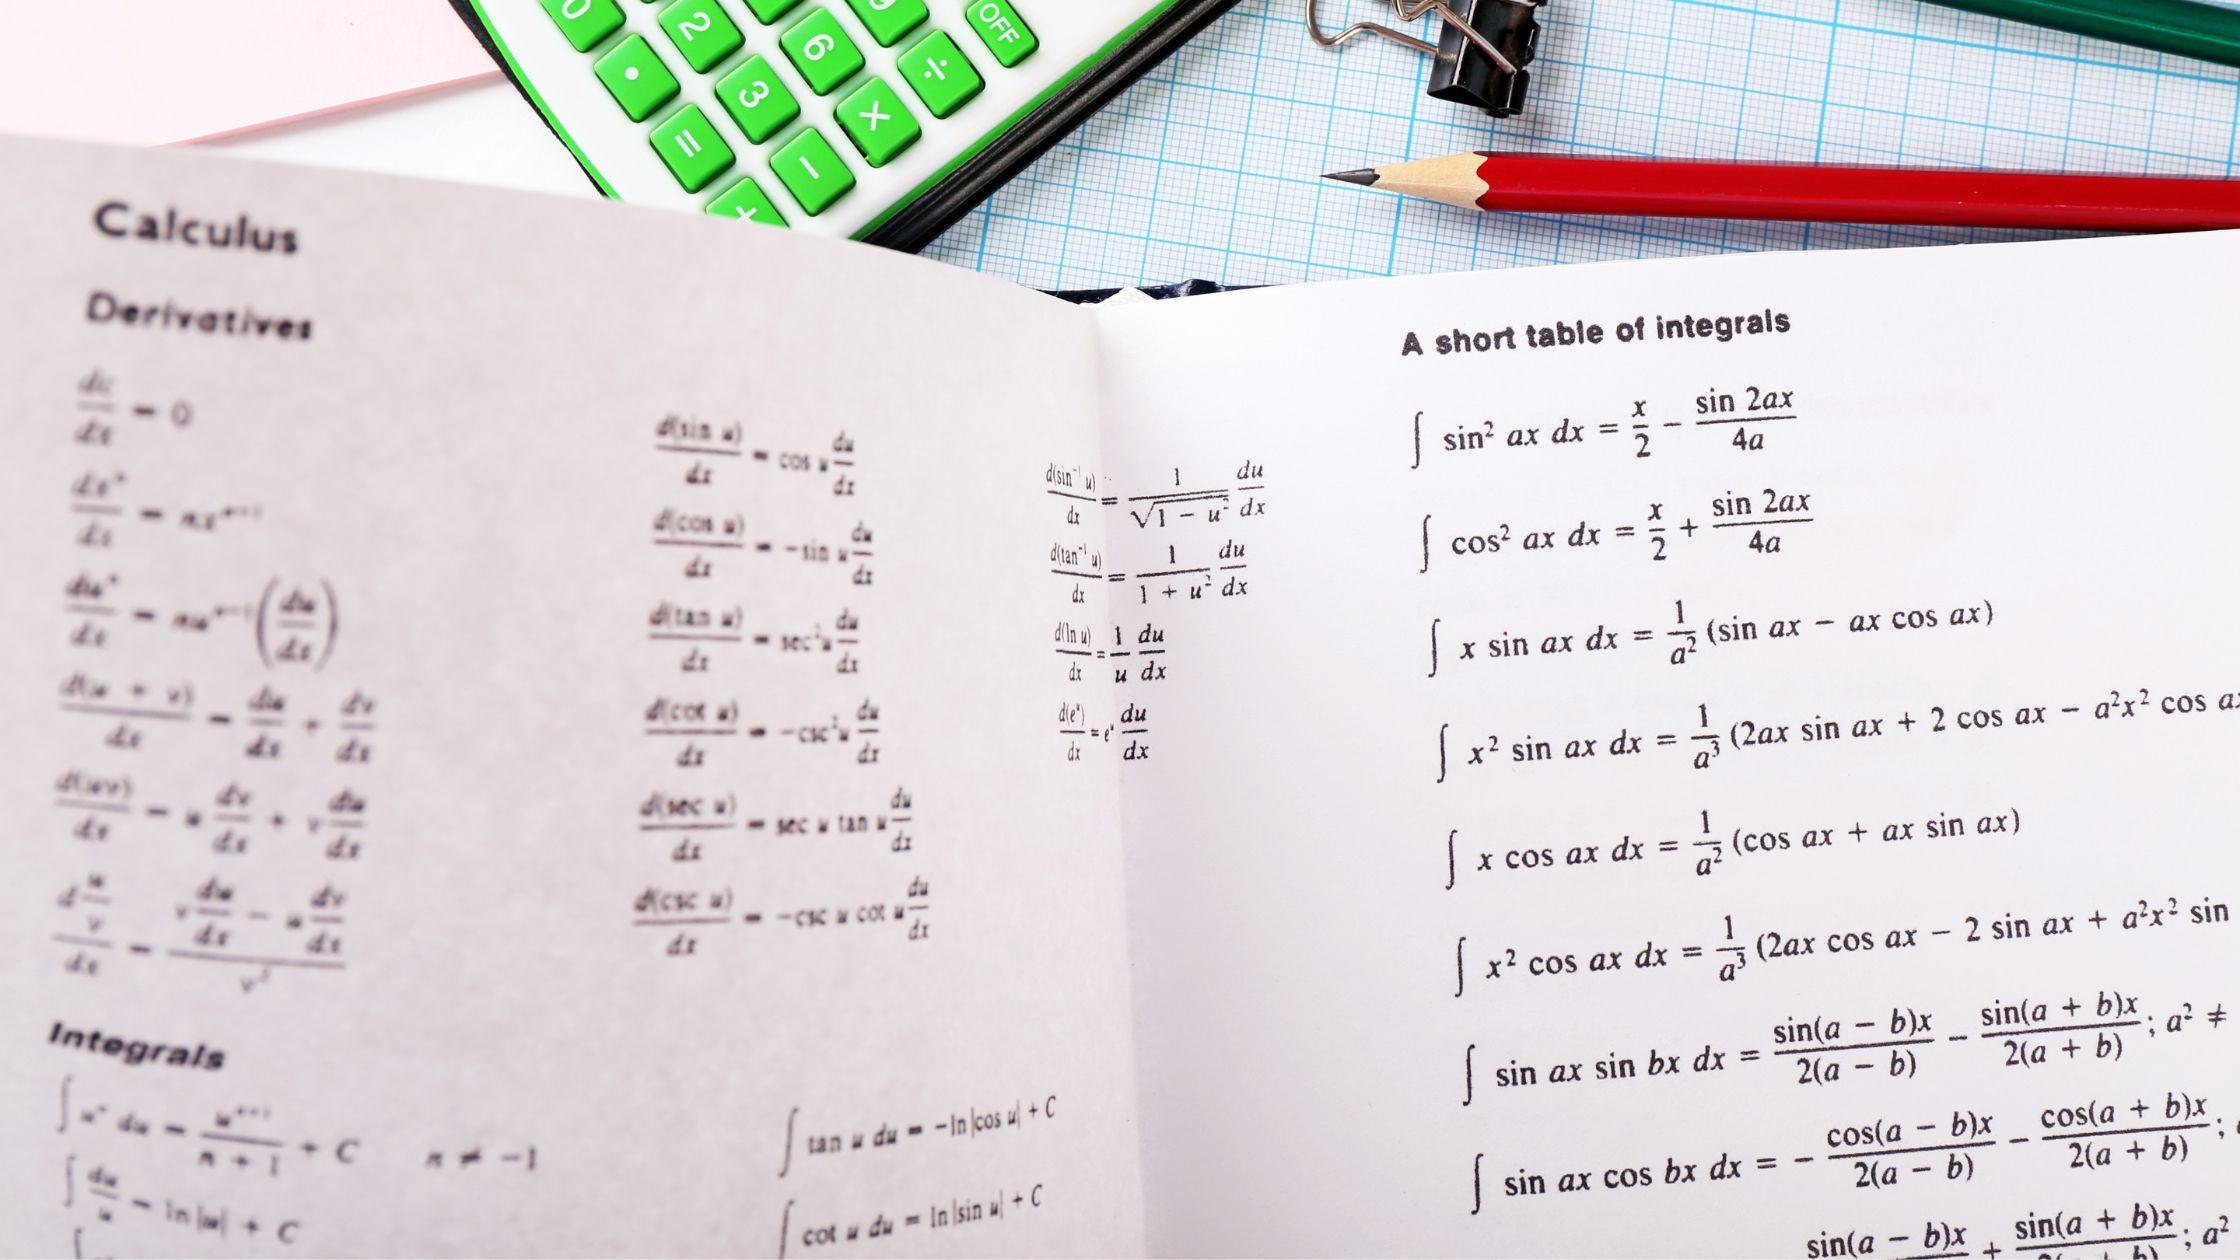 0
2
9
OFF
.
6
÷
3
×
=
−
+
Calculus
Derivatives
dc/dx = 0
dxⁿ/dx = nxⁿ⁻¹
duⁿ/dx = nuⁿ⁻¹(du/dx)
d(u + v)/dx = du/dx + dv/dx
d(uv)/dx = u dv/dx + v du/dx
d u/v /dx = (v du/dx − u dv/dx)/v²
d(sin u)/dx = cos u du/dx
d(cos u)/dx = −sin u du/dx
d(tan u)/dx = sec²u du/dx
d(cot u)/dx = −csc²u du/dx
d(sec u)/dx = sec u tan u du/dx
d(csc u)/dx = −csc u cot u du/dx
d(sin⁻¹ u)/dx = 1/√(1 − u²) du/dx
d(tan⁻¹ u)/dx = 1/(1 + u²) du/dx
d(ln u)/dx = 1/u du/dx
d(eᵘ)/dx = eᵘ du/dx
Integrals
∫ uⁿ du = uⁿ⁺¹/(n + 1) + C n ≠ −1
∫ du/u = ln|u| + C
∫ tan u du = −ln|cos u| + C
∫ cot u du = ln|sin u| + C
A short table of integrals
∫ sin² ax dx = x/2 − sin 2ax/4a
∫ cos² ax dx = x/2 + sin 2ax/4a
∫ x sin ax dx = 1/a² (sin ax − ax cos ax)
∫ x² sin ax dx = 1/a³ (2ax sin ax + 2 cos ax − a²x² cos a
∫ x cos ax dx = 1/a² (cos ax + ax sin ax)
∫ x² cos ax dx = 1/a³ (2ax cos ax − 2 sin ax + a²x² sin
∫ sin ax sin bx dx = sin(a − b)x/2(a − b) − sin(a + b)x/2(a + b); a² ≠
∫ sin ax cos bx dx = − cos(a − b)x/2(a − b) − cos(a + b)x/2(a + b);
sin(a − b)x + sin(a + b)x ; a²